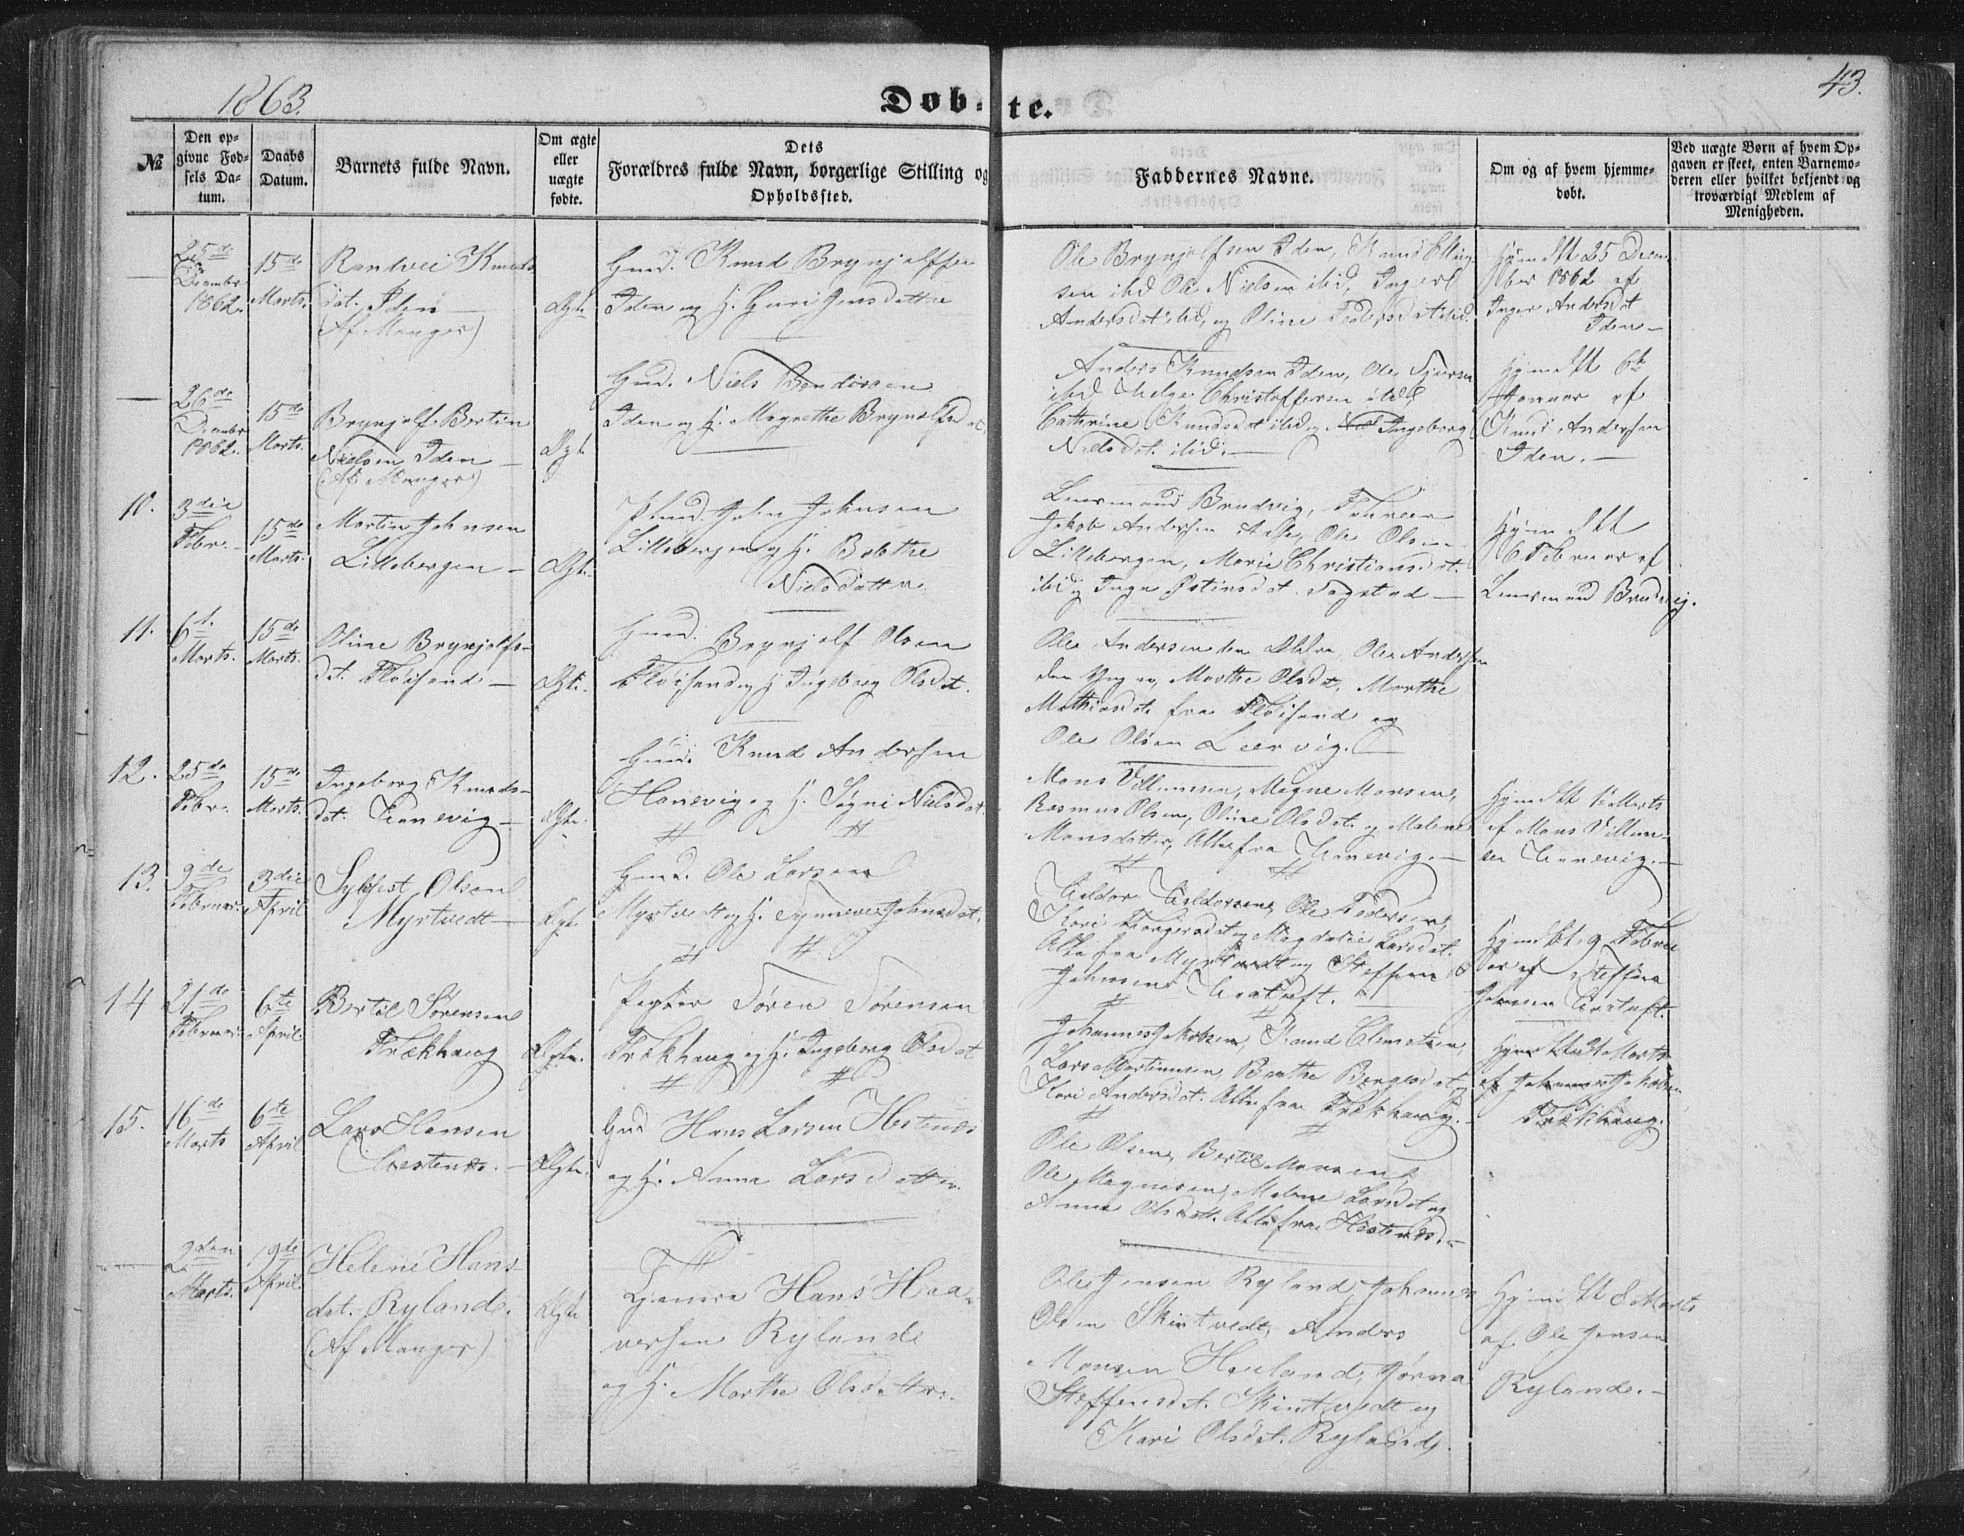 1863.
Døbte.
43.
№
Den opgivne Fødsels Datum.
Daabs Datum.
Barnets fulde Navn.
Om ægte eller uægte fødte.
Dets Forældres fulde Navn, borgerlige Stilling og Opholdssted.
Faddernes Navne.
Om og af hvem hjemmedøbt.
Ved uægte Børn af hvem Opgaven er skeet, enten Barnemoderen eller hvilket bekjendt og troværdigt Medlem af Menigheden.
25de December 1862.
15de Marts.
Randvei Knudsdat. Iden
(Af Manger)
Ægte
Gmd. Knud Brynjolfsen
Iden og H. Guri Jensdatter
Ole Brynjolfsen Iden, Knud Elling-
sen ibd Ole Nielsen ibid, Inger
Andersdat ibid, og Oline Pedersdat ibid.
Hjemdbt 25 Decem-
ber 1862 af
Inger Andersdat
Iden
26de December 1862.
15de Marts.
Brynjolf Bertin
Nielsen Iden
(Af Manger)
Ægt.
Gmd. Niels
Iden og H. Magrethe Brynolfsdat.
Anders Knudsen Iden, Ole
ibid Helge Christoffersen ibid
Cathrine Knudsdat ibid og Ingeborg
Nielsdat. ibid.
Hjemdbt 6te
Januar af
Knud Andersen
Iden.
10.
3die Febr.
15de Marts.
Martin Johnsen
Lillebergen
Ægte.
John Johnsen
Lillebergen og H.
Nielsdatter.
Lensmand Brudvig,
Jakob Andersen Ask, Ole Olsen
Lillebergen, Marie Christiansdat.
ibid og Inga Fagstad
Hjemdbt
6 Februar af
Lensmand Brudvig.
11.
6t. Marts.
15de Marts.
Oline Brynjolfs-
dat. Fløisand
Ægte.
Gmd. Brynjolf Olsen
Fløisand og H. Ingeborg Olsdat.
Ole Andersen den Ældre, Ole Andersen
den Yngre, Marthe Olsdat, Marthe
Mathiasdat. fra Fløisand og
Ole Olsen Leervig.
12.
25de Febr.
15de Marts.
Ingeborg Knuds-
dat. Hanevig
Ægte.
Gmd. Knud Andersen
Hanevig og H. Signe Nielsdat.
Mons Villumsen, Magne Monsen,
Rasmus Olsen, Oline Olsdat. og Malene
Monsdatter, Alle fra Hanevig.
Hjemdbt 1 Marts
af Mons Villum-
sen Hanevig.
13.
9de Februar.
3die April
Sylfest Olsen
Myrtvedt
Ægte.
Gmd. Ole Larsen
Myrtvedt og H. Synneve Johnsdat.
Haldor Haldorsen, Ole Pedersen,
Kari Torgersdat og Magdalie Larsdat.
Alle fra Myrtvedt og Steffen
Johnsen Hratuft.
Hjemdbt. 9 Febru-
ar af Steffen
Johnsen Hratuft.
14
21de Februar.
6te April
Bertil Sørensen
Trækhaug
Ægte.
Søren Sørensen
Trækhaug og H. Ingeborg Olsdat
Johannes Jakobsen, Knud Clemetsen,
Lars Martinusen, Barthe Børgesdat og
Kari Andersdat. Alle fra Trækhaug.
af Johannes Jakobsen
Trækhaug.
15.
16de Marts
6te April
Lars Hansen
Hestenæs.
Ægte.
Gmd Hans Larsen Hestenæs
og H. Anna Larsdatter.
Ole Olsen, Bertil Monsen,
Ole Magnesen, Malene Larsdat og
Anna Olsdatt. Alle fra Hestenæs.
2den Marts.
9de April.
Helene Hans-
dat. Ryland.
(Af Manger)
Ægte
Hans Haa-
versen Ryland
og H. Marthe Olsdatter.
Ole Jensen Ryland, Johannes
Olsen Skintvedt, Anders
Monsen Heuland, Jørna
Steffensdat. Skintvedt og
Kari Olsdat. Ryland.
Hjemdbt 8 Marts
af Ole Jensen
Ryland.